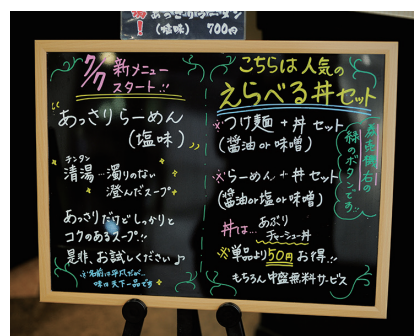 あっさりらーめん
(塩味) 700円
7/7 新メニュー
スタート!!
"あっさりらーめん
(塩味)"
チンタン
清湯…濁りのない
澄んだスープ
あっさりだけどしっかりと
コクのあるスープ!!
是非、お試しください♪
※名前は平凡だが…
味は天下一品です
こちらは人気の
えらべる丼セット
※つけ麺+丼セット
(醤油or味噌)
※らーめん+丼セット
(醤油or塩or味噌)
丼は… あぶり
チャーシュー丼
※単品より50円お得!!
もちろん中盛無料サービス
券売機右の
緑のボタンです…